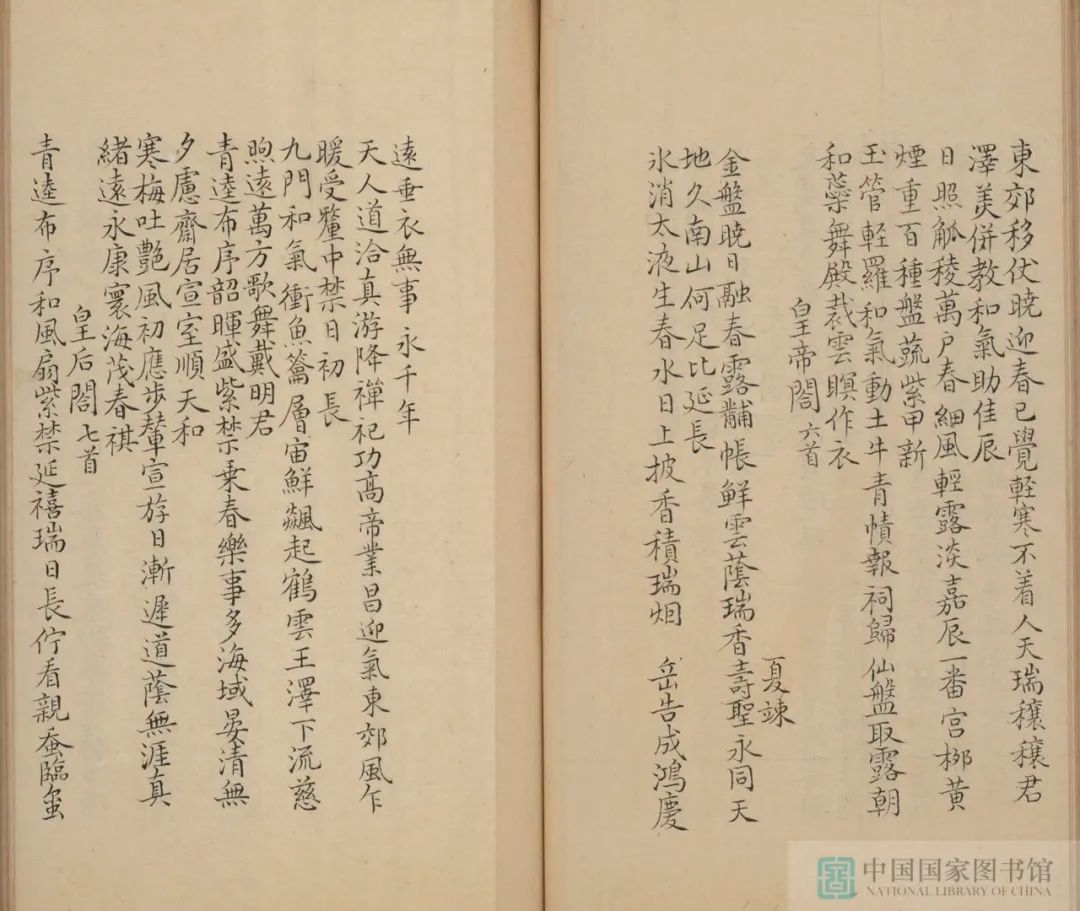 東郊移伏曉迎春已覺輊寒不着人天瑞穰穰君
澤美併教和氣助佳辰
日照觚稜萬户春細風輕露淡嘉辰一番宫栁黄
煙重百種盤蔬紫甲新
玉管輕羅和氣動土牛青幘報祠歸仙盤取露朝
和蘂舞殿裁雲暝作衣
皇帝閤 六首
夏竦
金盤曉日融春露黼帳鮮雲蔭瑞香壽聖永同天
地久南山何足比延長
氷消太液生春水日上披香積瑞烟 岳告成鴻慶
遠垂衣無事永千年
天人道洽真游降禪祀功高帝業昌迎氣東郊風乍
暖受釐中禁日初長
九門和氣衝魚籥層宙鮮飈起鶴雲王澤下流慈
煦遠萬方歌舞戴明君
青逵布序韶暉盛紫禁乗春樂事多海域晏清無
夕慮齋居宣室順天和
寒梅吐艷風初應步輦宣斿日漸遲道蔭無涯真
緒遠永康寰海茂春祺
皇后閤 七首
青逵布序和風扇紫禁延禧瑞日長佇看親蚕臨
中国国家图书馆
NATIONAL LIBRARY OF CHINA